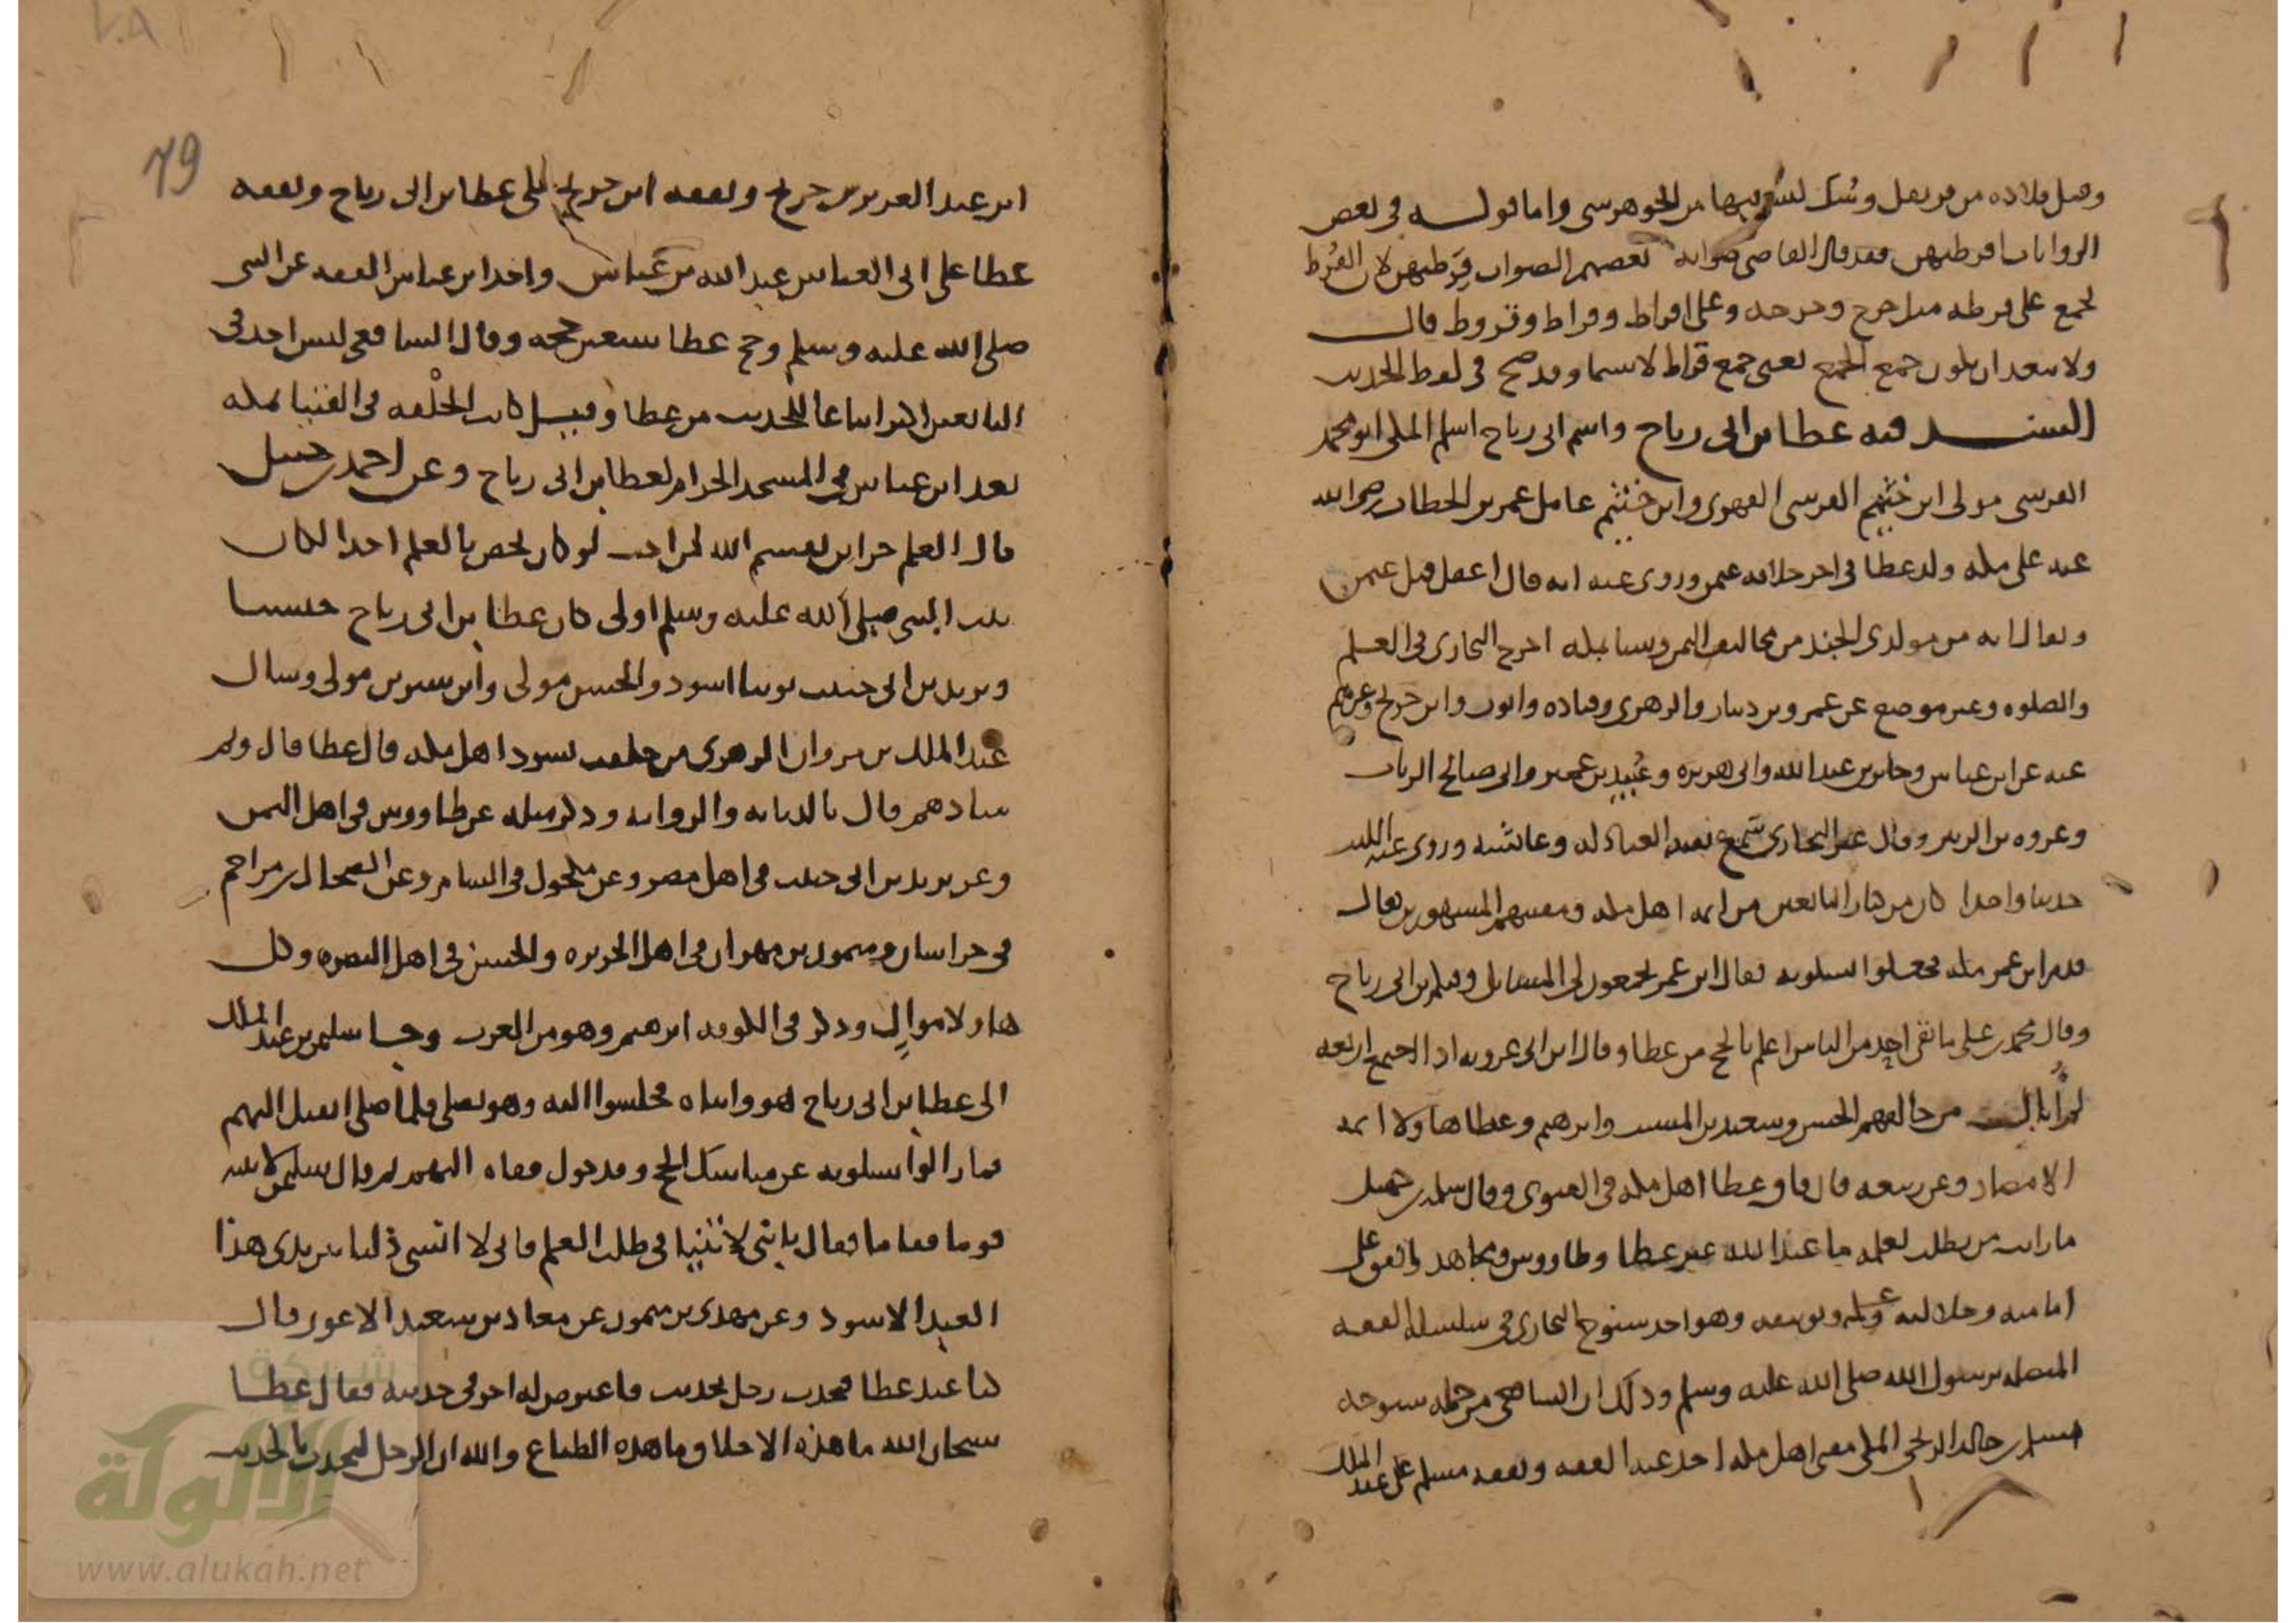 وقيل قلاده من قرنفل ومسك ليس فيها من الجوهر شي واما قوله في بعض
الروايات اقرطتهن فقد قال القاضي صوابه بعضهم الصواب قِرَطتهن لان القُرط
يجمع على قرطه مثل خرج وخرجه وعلى اقراط وقراط وقروط قال
ولا يبعد ان يكون جمع الجمع يعني جمع قراط لاسيما وقد صح في لفظ الحديث
السند فيه عطا بن ابي رباح واسم ابي رباح اسلم المكي ابو محمد
القرشي مولى ابن خثيم القرشي الفهري وابن خثيم عامل عمر بن الخطاب رضي الله
عنه على مكه ولد عطا في اخر خلافه عثمن وروي عنه انه قال اعقل قتل عثمن
ويقال انه من مولدي الجند من مخاليف اليمن ونشا بمكه اخرج البخاري في العلم
والصلوه وغير موضع عن عمرو بن دينار والزهري وقتاده وايوب وابن جريج وغيرهم
عنه عن ابن عباس وجابر بن عبد الله وابي هريره وعُبيد بن عمير وابي صالح الزيات
وعروه بن الزبير وقال غير البخاري سمع العبادله وعائشه وروى عنه الليث
حديثا واحدا كان من كبار التابعين من ايمه اهل مكه ومفتيهم المشهورين يقال
قدم ابن عمر مكه فجعلوا يسلونه فقال ابن عمر تجمعون لي المسائل وفيكم بن ابي رباح
وقال محمد بن علي ما بقي احد من الناس اعلم بالحج من عطا وقال ابن ابي عروبه اذا اجتمع اربعه
لم أبال من خالفهم الحسن وسعيد بن المسيب وابرهيم وعطا هاولا ايمه
الامصار وعن ربيعه قال فاق عطا اهل مكه في الفتوى وقال سلمه بن كهيل
ما رايت من يطلب بعلمه ما عند الله غير عطا وطاووس ومجاهد واتفق على
امامته وجلالته وعلمه وتوثيقه وهو احد شيوخ البخاري في سلسله الفقه
المتصله برسول الله صلى الله عليه وسلم وذلك ان الشافعي من جمله شيوخه
مسلم بن خالد الزنجي المكي مفتي اهل مكه اخذ عنه الفقه وتفقه مسلم على عبد الملك
79
ابن عبد العزيز بن جريج وتفقه ابن جريج على عطا بن ابي رباح وتفقه
عطا على ابي العباس عبد الله بن عباس واخذ ابن عباس الفقه عن النبي
صلى الله عليه وسلم وحج عطا سبعين حجه وقال الشافعي ليس احد في
التابعين اكثر اتباعا للحديث من عطا وقيل كانت الحلقه في الفتيا بمكه
بعد ابن عباس في المسجد الحرام لعطا بن ابي رباح وعن احمد بن حنبل
قال العلم خزاين يقسم الله لمن احب لو كان يخص بالعلم احدا لكان
بيت النبي صلى الله عليه وسلم اولى كان عطا بن ابي رباح حبشيا
ويزيد بن ابي حبيب نوبيا اسود والحسن مولى وابن سيرين مولى وسال
عبد الملك بن مروان الزهري من خلفت يسود اهل مكه قال عطا قال وبم
سادهم قال بالديانه والروايه وذكر مثله عن طاووس في اهل اليمن
وعن يزيد بن ابي حبيب في اهل مصر وعن مكحول في الشام وعن الضحاك بن مزاحم
في خراسان وميمون بن مهران في اهل الجزيره والحسن في اهل البصره وكل
هاولا موالٍ وذكر في الكوفه ابرهيم وهو من العرب وجا سليمن بن عبد الملك
الى عطا بن ابي رباح هو وابناه فجلسوا اليه وهو يصلي فلما صلى انفتل اليهم
فما زالوا يسلونه عن مناسك الحج وقد حول قفاه اليهم ثم قال سليمن لابنيه
قوما فقاما فقال يا بني لا تنيا في طلب العلم فاني لا انسى ذلنا بين يدي هذا
العبد الاسود وعن مهدي بن ميمون عن معاذ بن سعيد الاعور قال
كنا عند عطا فحدث رجل بحديث فاعترض له اخر في حديثه فقال عطا
سبحان الله ما هذه الاخلاق ما هذه الطباع والله ان الرجل ليحدث بالحديث
شبكة
الألوكة
www.alukah.net